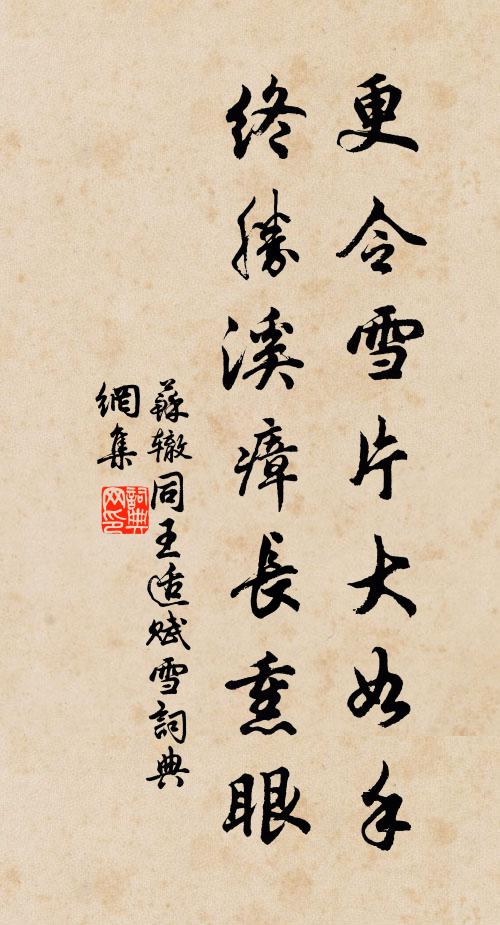 更令雪片大如手
終勝溪瘴長熏眼
蘇轍同王適賦雪詞典
網集
詞典
网印